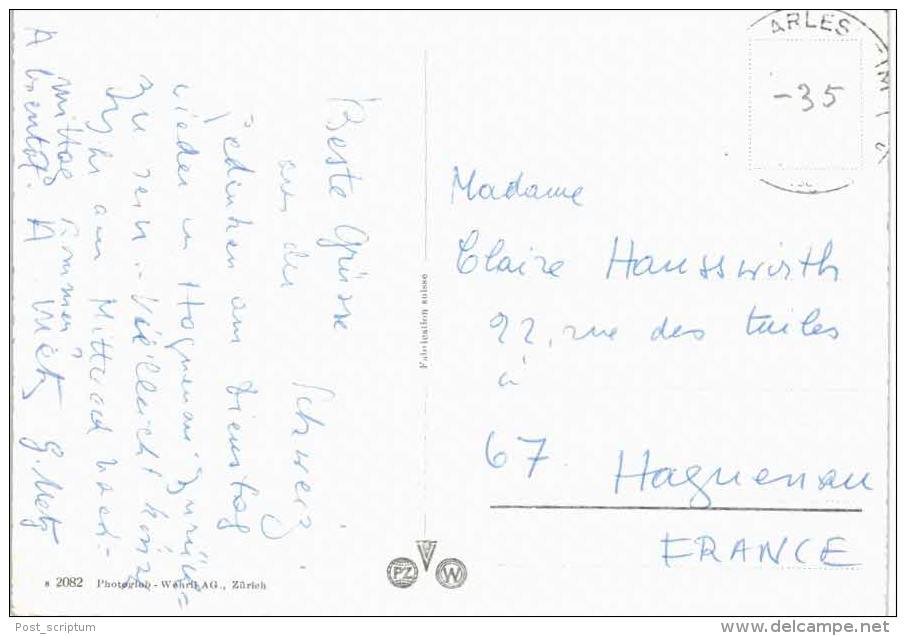 Beste Grüsse
aus der Schweiz
gedenken am Dienstag
wieder in Hagenau zurück=
zu sein. Vielleicht
am Mittwoch nach=
mittag
A bientôt. A. Metz G. Metz
ARLES
-35
Madame
Claire Hausswirth
22, rue des tuiles
à
67 Haguenau
FRANCE
Fabrication suisse
PZ
W
s 2082 Photoglob - Wehrli AG., Zürich
Post_scriptum
delcampe.net